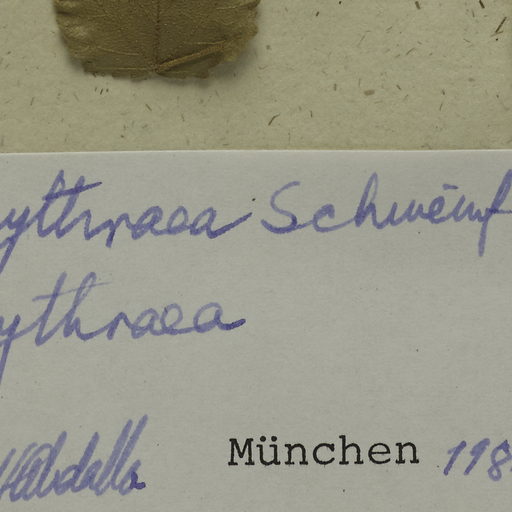 ythraea Schweinf
ythraea
Abdalla München 198